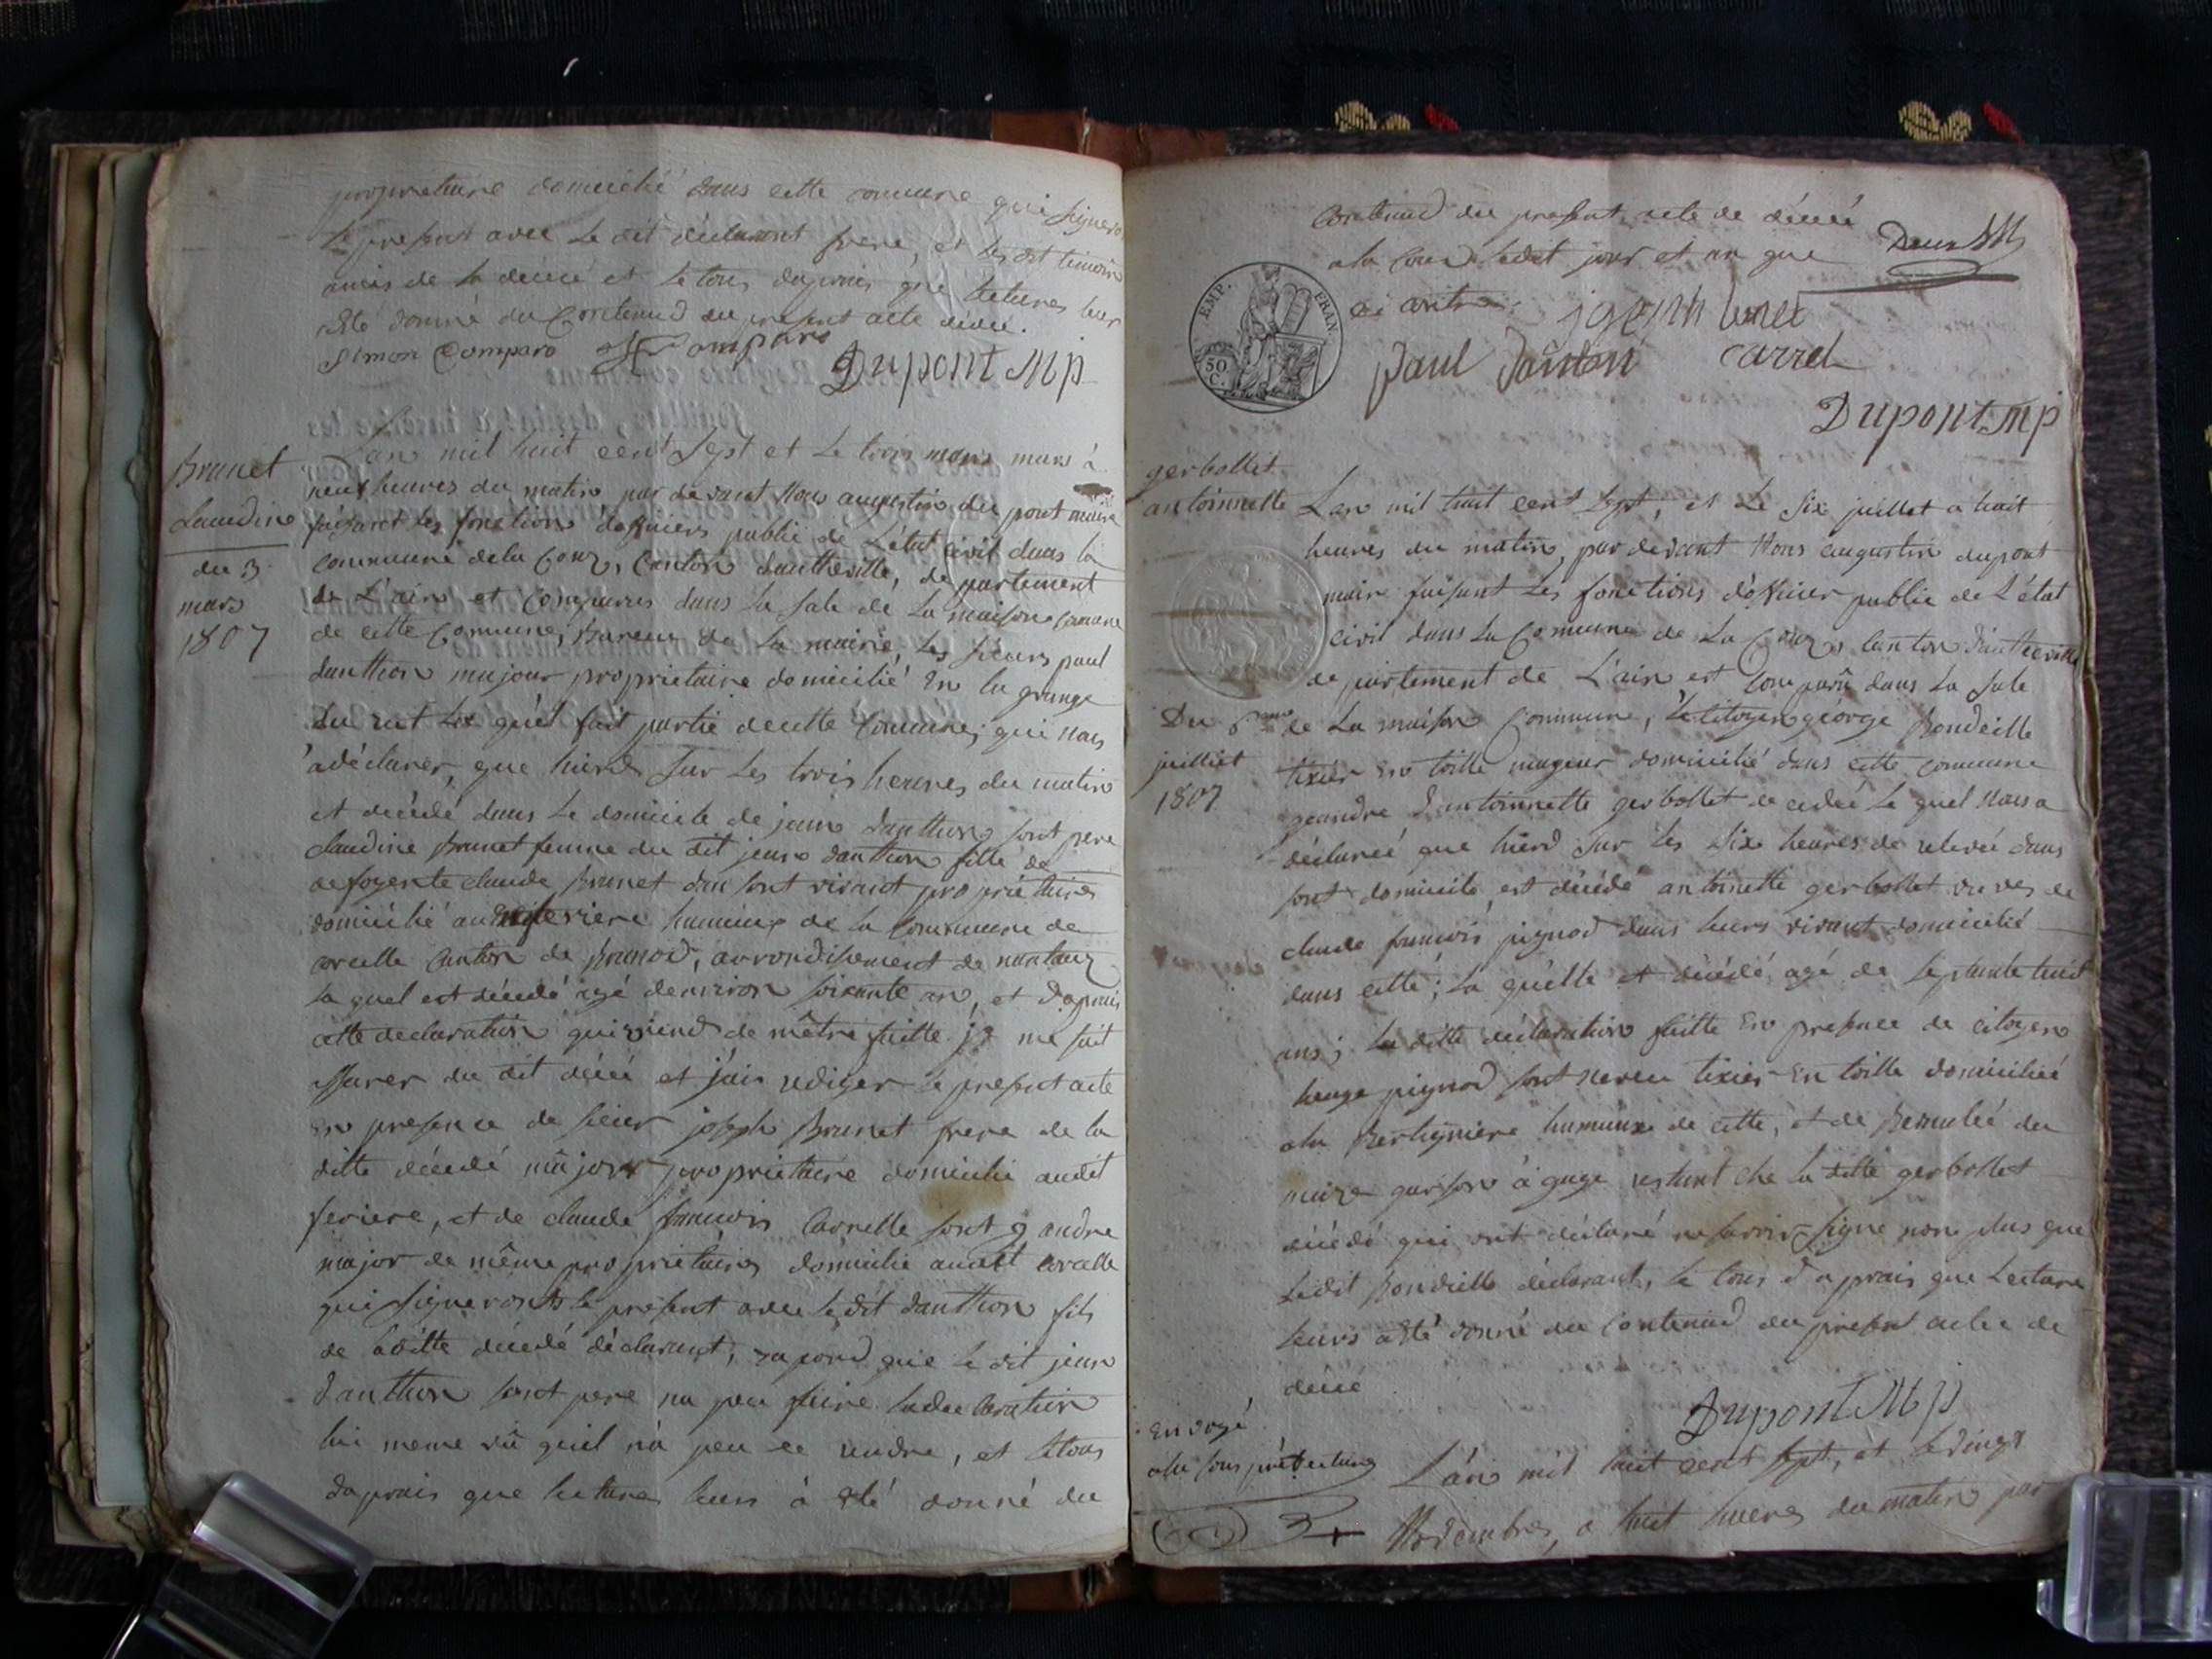 proprietaire domicilié dans cette comune qui signeron
le present avec Le dit déclarant frere, et les dit temoin
amis de la décéé et le tous daprais que lectures leur
esté donné du Contenud du present acte décéé.
Simon Comparo Comparo
Dupont Mp
Brunet
Laudine
du 3
mars
1807
Lan mil huit cent Sept et Le trois mars mars à
neuf heures du matin par devant Nous augustin du pont maire
faisant les fonction dofficiers public de L'état civil dans la
commune de la Couz, Canton dautheville, departement
de L'ain et Comparus dans la sale de La maison comune
de cette Comune, Bureau de la mairie, les sieurs paul
danthon majour proprietaire domicilié En la grange
du rut qu'el fait partie de cette Comune; qui nous
à déclarer, que hierd sur les trois heures du matin
et décédé dans Le domicile de jean danthon sont pere
claudine Brunet femme du dit jean danthon fille de
claude Brunet dan sont vivant propriétaire
domicilié au feriere humeux de la Commune de
corcelle Canton de Brunod, arrondisement de nantuaz
la quel est décédé agé denviron soixante an, et daprais
cette declaration qui viend de mêtre faitte je me suit
assurer du dit décéé et j'ais rediger le present acte
En presence de sieur joseph Brunet frere de la
ditte décédé mâjour proprietaire domicilié audit
feriere, et de claude francois Carrelle sont gandre
major de même propriétaires domicilié audit corcelle
qui signeronts le present avec le dit danthon fils
de laditte décédé déclarant, raport que le dit jean
danthon sont pere na peu faire ladeclaration
lui meme vû quil n'a peu ce rendre, et letous
daprais que lectures leurs à été donné du
Contenud du present acte de décéé
a la Couz ledit jour et an que
ci contre.
EMP. FRAN.
50 C.
joseph bruet
paul danton carrel
Dupont mp
gerbollet
antoinnette
Du 6eme
juilliet
1807
Lan mil huit cent Sept, et Le Six juillet a huit
heures du matin, par devant Nous augustin dupont
maire faisant Les fonctions d'officier public de L'état
civil dans La Comune de La Couz, canton d'autheville
departement de L'ain est Comparû dans La sale
de La maison Commune, le citoyen géorge Bondeille
tixier En toille mageur domicilié dans cette commune
geandre d'antoinnette gerbollet decedéé Le quel Nous a
déclareé que hierd sur les Six heures de relevée dans
sont domicile, est décédé antoinette gerbollet veuve de
claude francois pignod dans leurs vivant domicilié
dans cette; La quelle et décédé agé de septante huit
ans; La ditte déclaration faitte En presence de citoyen
pignod sont neveu tixier En toille domicilié
a la Bertiniere humeux de cette, et de
garson à gage restant che la ditte gerbollet
décédé qui ont déclaré ne savoir signe non plus que
Ledit Bondielle déclarant, le tous d'aprais que Lecture
leurs a été donné du Contenud du présent acte de
décéé
Dupont Mp
Envoyé
a la sous préfecture
L'an mil huit cent Sept, et le vingt
Novembre, a huit heures du matin par